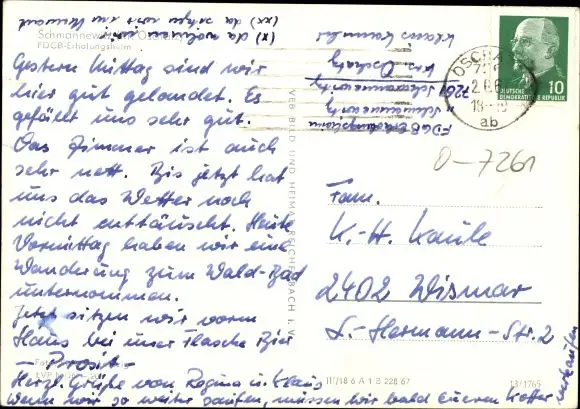 Schmannewitz
FDGB-Erholungsheim
(x) da wohnen wir
(xx) da sitzen wir im Moment
Gestern Mittag sind wir
hier gut gelandet. Es
gefällt uns sehr gut.
Das Zimmer ist auch
sehr nett. Bis jetzt hat
uns das Wetter noch
nicht enttäuscht. Heute
Vormittag haben wir eine
Wanderung zum Wald-Bad
unternommen.
Jetzt sitzen wir vorm
Haus bei einer Flasche Bier
— Prosit —
Herzl. Grüße von Regina u. Klaus
Wenn wir so weiter saufen, müssen wir bald eueren Koffer
verkaufen
VEB BILD UND HEIMAT REICHENBACH I. V.
Klaus
Krs. Oschatz
7261 Schmannewitz
FDGB Erholungsheim
OSCHATZ
18
ab
10
DEUTSCHE
DEMOKRATISCHE REPUBLIK
O-7261
Fam.
K.-H. Kaule
2402 Wismar
L.-Hermann-Str. 2
III/18/6 A 1 B 228 67
13/1765